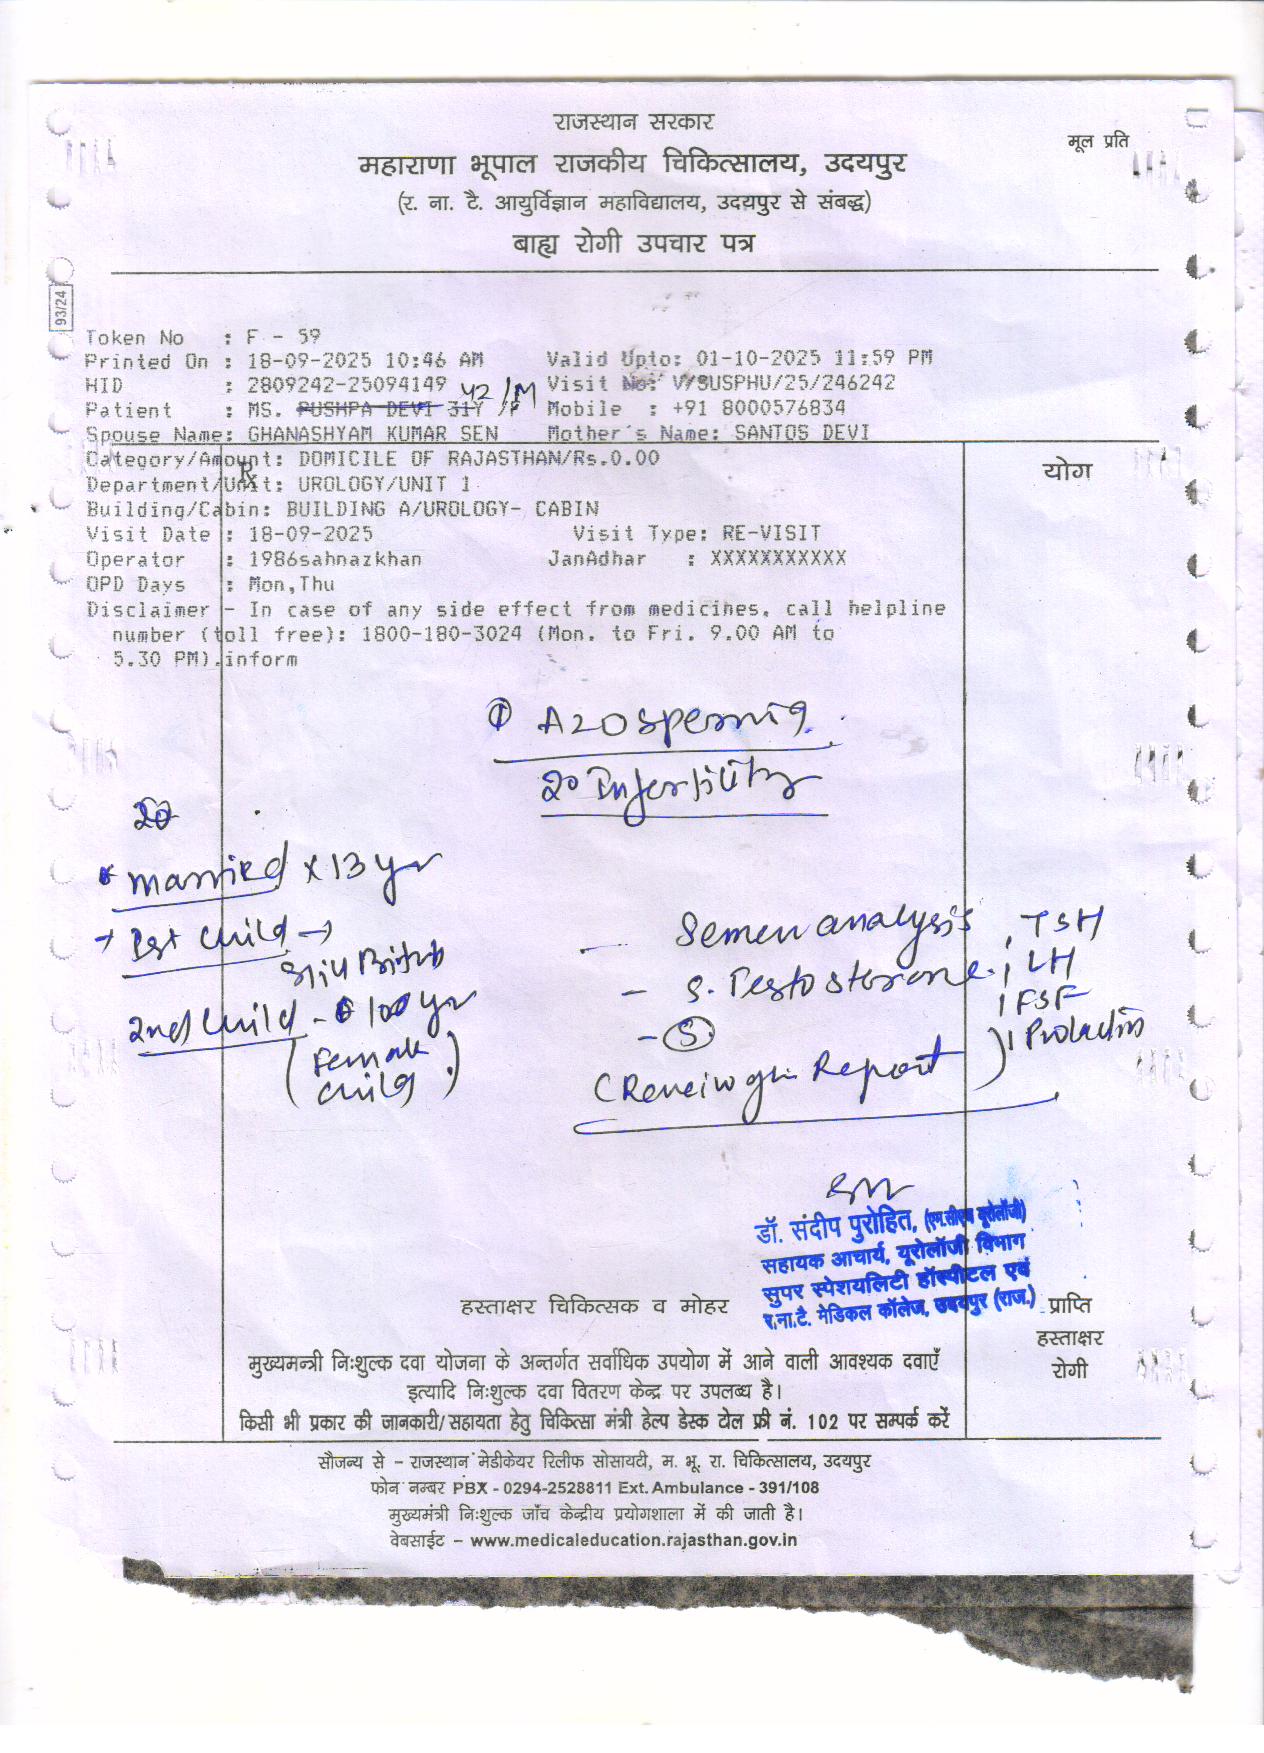 राजस्थान सरकार
मूल प्रति
महाराणा भूपाल राजकीय चिकित्सालय, उदयपुर
(र. ना. टै. आयुर्विज्ञान महाविद्यालय, उदयपुर से संबद्ध)
बाह्य रोगी उपचार पत्र
93/24
Token No : F - 59
Printed On : 18-09-2025 10:46 AM Valid Upto: 01-10-2025 11:59 PM
HID : 2809242-25094149 Visit No: V/SUSPHU/25/246242
42/M
Patient : MS. PUSHPA DEVI 31Y /F Mobile : +91 8000576834
Spouse Name: GHANASHYAM KUMAR SEN Mother's Name: SANTOS DEVI
Category/Amount: DOMICILE OF RAJASTHAN/Rs.0.00
योग
Rx
Department/Unit: UROLOGY/UNIT 1
Building/Cabin: BUILDING A/UROLOGY- CABIN
Visit Date : 18-09-2025 Visit Type: RE-VISIT
Operator : 1986sahnazkhan JanAdhar : XXXXXXXXXXX
OPD Days : Mon,Thu
Disclaimer - In case of any side effect from medicines, call helpline
number (toll free): 1800-180-3024 (Mon. to Fri. 9.00 AM to
5.30 PM).inform
① Azospermia
2° Infertility
Married x 13 yr
→ 1st child →
Still Birth
2nd child - yr
(Female child)
- Semen analysis, TSH
- S. Testosterone, LH
, FSF
- (S) , Prolactin
( Report )
डॉ. संदीप पुरोहित, (एम.सीएच यूरोलॉजी)
सहायक आचार्य, यूरोलॉजी विभाग
सुपर स्पेशयलिटी हॉस्पीटल एवं
र.ना.टै. मेडिकल कॉलेज, उदयपुर (राज.)
हस्ताक्षर चिकित्सक व मोहर
प्राप्ति
हस्ताक्षर
रोगी
मुख्यमन्त्री निःशुल्क दवा योजना के अन्तर्गत सर्वाधिक उपयोग में आने वाली आवश्यक दवाएँ
इत्यादि निःशुल्क दवा वितरण केन्द्र पर उपलब्ध है।
किसी भी प्रकार की जानकारी/सहायता हेतु चिकित्सा मंत्री हेल्प डेस्क टोल फ्री नं. 102 पर सम्पर्क करें
सौजन्य से – राजस्थान मेडीकेयर रिलीफ सोसायटी, म. भू. रा. चिकित्सालय, उदयपुर
फोन नम्बर PBX - 0294-2528811 Ext. Ambulance - 391/108
मुख्यमंत्री निःशुल्क जाँच केन्द्रीय प्रयोगशाला में की जाती है।
वेबसाईट – www.medicaleducation.rajasthan.gov.in